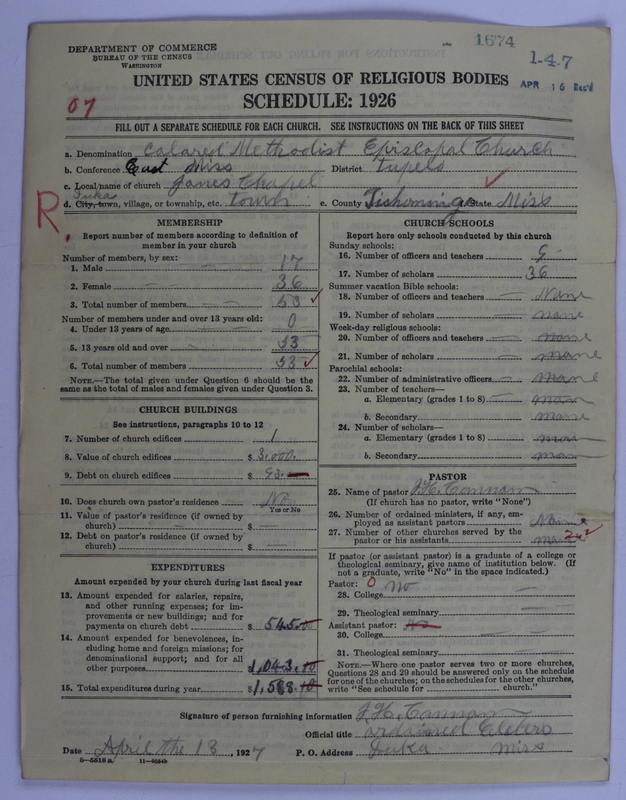 1674
1-4-7
APR 16 Rec'd
DEPARTMENT OF COMMERCE
BUREAU OF THE CENSUS
WASHINGTON
UNITED STATES CENSUS OF RELIGIOUS BODIES
SCHEDULE: 1926
07
FILL OUT A SEPARATE SCHEDULE FOR EACH CHURCH. SEE INSTRUCTIONS ON THE BACK OF THIS SHEET
a. Denomination Colared Methodist Episcopal Church
b. Conference East Miss District Tupelo
c. Local name of church Janes Chapel
Iuka
d. City, town, village, or township, etc. town e. County Tishomingo State Miss
R.
MEMBERSHIP
Report number of members according to definition of member in your church
Number of members, by sex:
1. Male 17
2. Female 36
3. Total number of members 53
Number of members under and over 13 years old:
4. Under 13 years of age 0
5. 13 years old and over 53
6. Total number of members 53
NOTE.—The total given under Question 6 should be the same as the total of males and females given under Question 3.
CHURCH BUILDINGS
See instructions, paragraphs 10 to 12
7. Number of church edifices 1
8. Value of church edifices $ 3,000.
9. Debt on church edifices $ 93.
10. Does church own pastor's residence No
Yes or No
11. Value of pastor's residence (if owned by church) $
12. Debt on pastor's residence (if owned by church) $
EXPENDITURES
Amount expended by your church during last fiscal year
13. Amount expended for salaries, repairs, and other running expenses; for improvements or new buildings; and for payments on church debt $ 545.00
14. Amount expended for benevolences, including home and foreign missions; for denominational support; and for all other purposes 1,043.10
15. Total expenditures during year $1,588.10
CHURCH SCHOOLS
Report here only schools conducted by this church
Sunday schools:
16. Number of officers and teachers
17. Number of scholars 36
Summer vacation Bible schools:
18. Number of officers and teachers None
19. Number of scholars none
Week-day religious schools:
20. Number of officers and teachers none
21. Number of scholars none
Parochial schools:
22. Number of administrative officers none
23. Number of teachers—
a. Elementary (grades 1 to 8) none
b. Secondary none
24. Number of scholars—
a. Elementary (grades 1 to 8) none
b. Secondary none
PASTOR
25. Name of pastor J. H.
(If church has no pastor, write "None")
26. Number of ordained ministers, if any, employed as assistant pastors None
27. Number of other churches served by the pastor or his assistants none 2
If pastor (or assistant pastor) is a graduate of a college or theological seminary, give name of institution below. (If not a graduate, write "No" in the space indicated.)
Pastor: 0 No
28. College
29. Theological seminary
Assistant pastor: No
30. College
31. Theological seminary
NOTE.—Where one pastor serves two or more churches, Questions 28 and 29 should be answered only on the schedule for one of the churches; on the schedules for the other churches, write "See schedule for church."
Signature of person furnishing information J. H.
Official title ordained
Date April the 13, 1927 P. O. Address Iuka Miss
8—5518 a 11—9054b